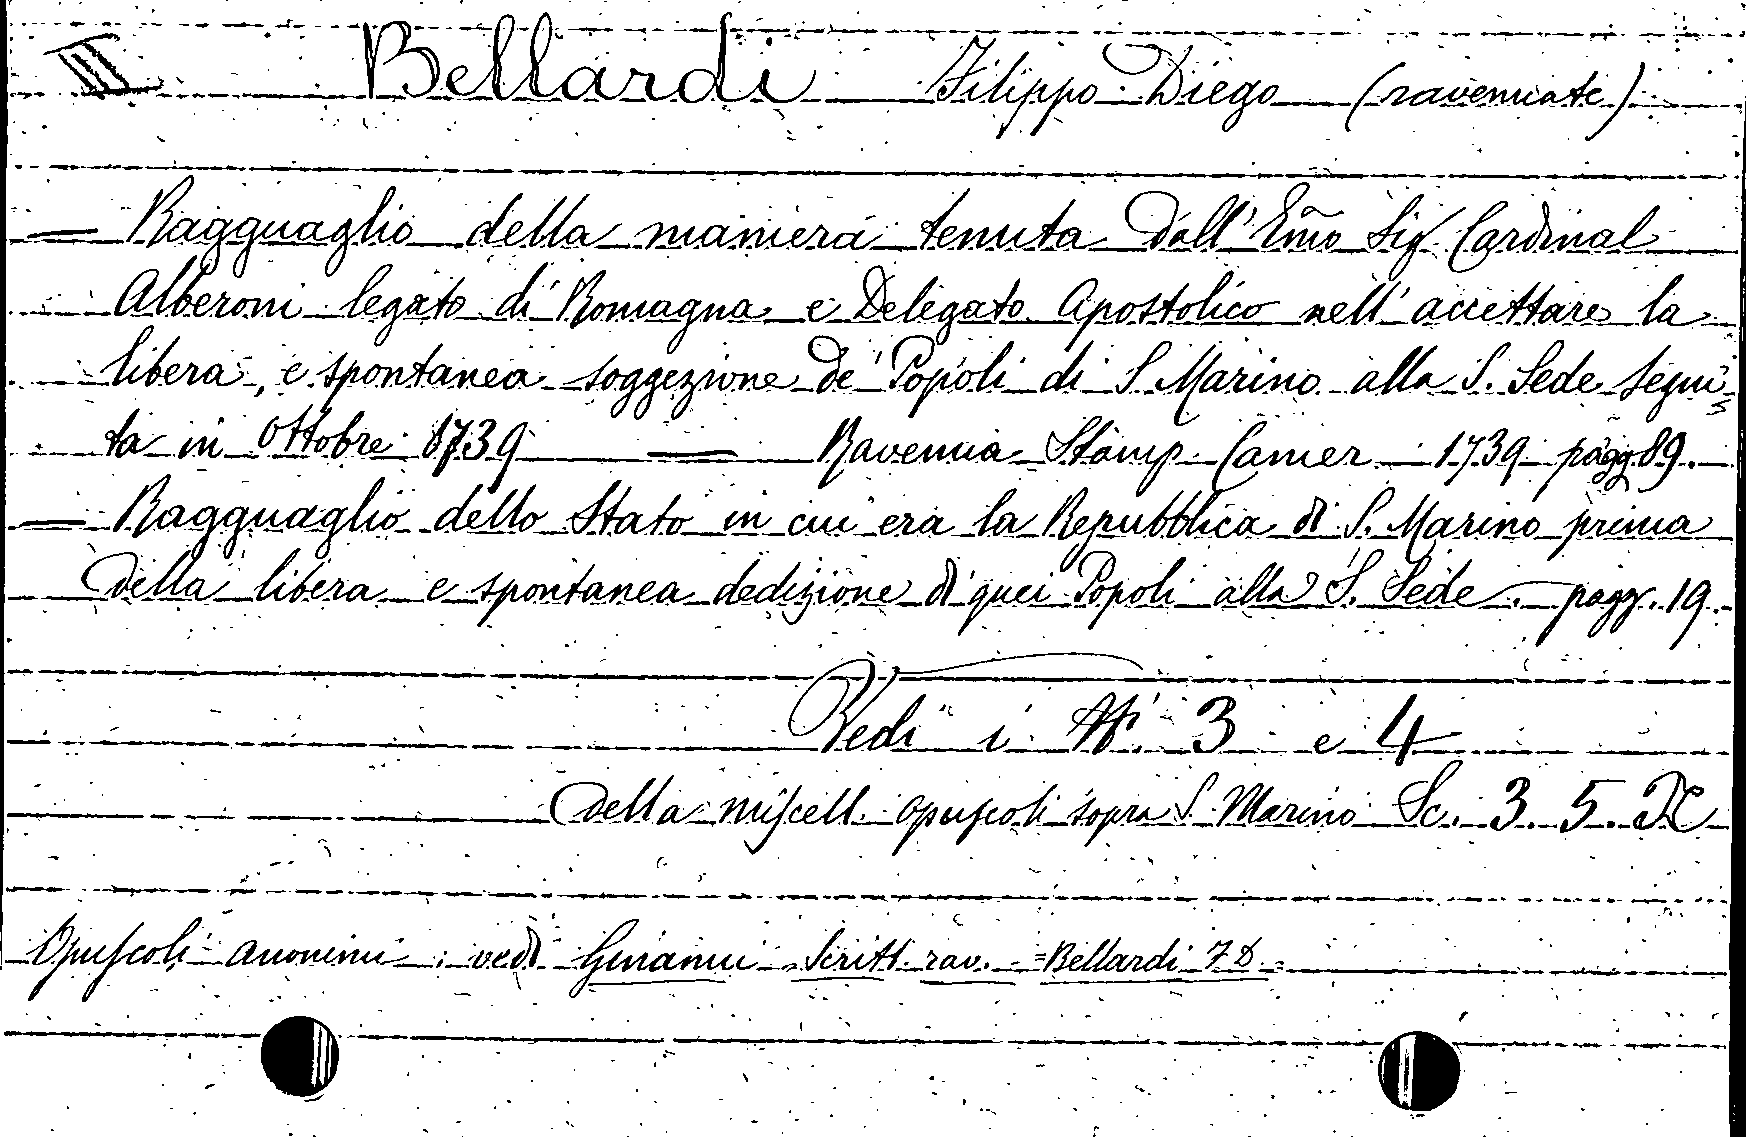 III Bellardi Filippo Diego (ravennate)
— Ragguaglio della maniera tenuta dall' Emo Sig Cardinal
Alberoni legato di Romagna e Delegato Apostolico nell' accettare la
libera, e spontanea soggezione de' Popoli di S. Marino alla S. Sede segui=
ta in Ottobre 1739 — Ravenna Stamp. Camer 1739 pagg 89.
— Ragguaglio dello Stato in cui era la Repubblica di S. Marino prima
della libera e spontanea dedizione di quei Popoli alla S. Sede. — pagg. 19.
Vedi i Ni 3 e 4
della miscell. opuscoli sopra S. Marino Sc. 3. 5. K
Opuscoli anonimi: vedi Ginanni Scritt. rav. = Bellardi F D =